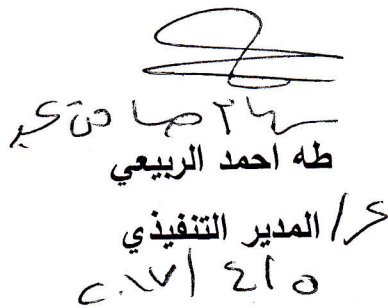 طه احمد الربيعي
ع/ المدير التنفيذي
٢٠١٧/٤/٥